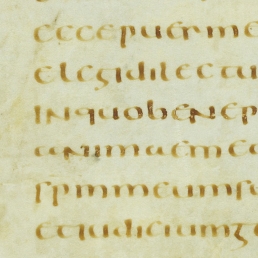 ecce puer me
elegi dilectu
in quo bene p
anima me
spm meum su
et iudicium g